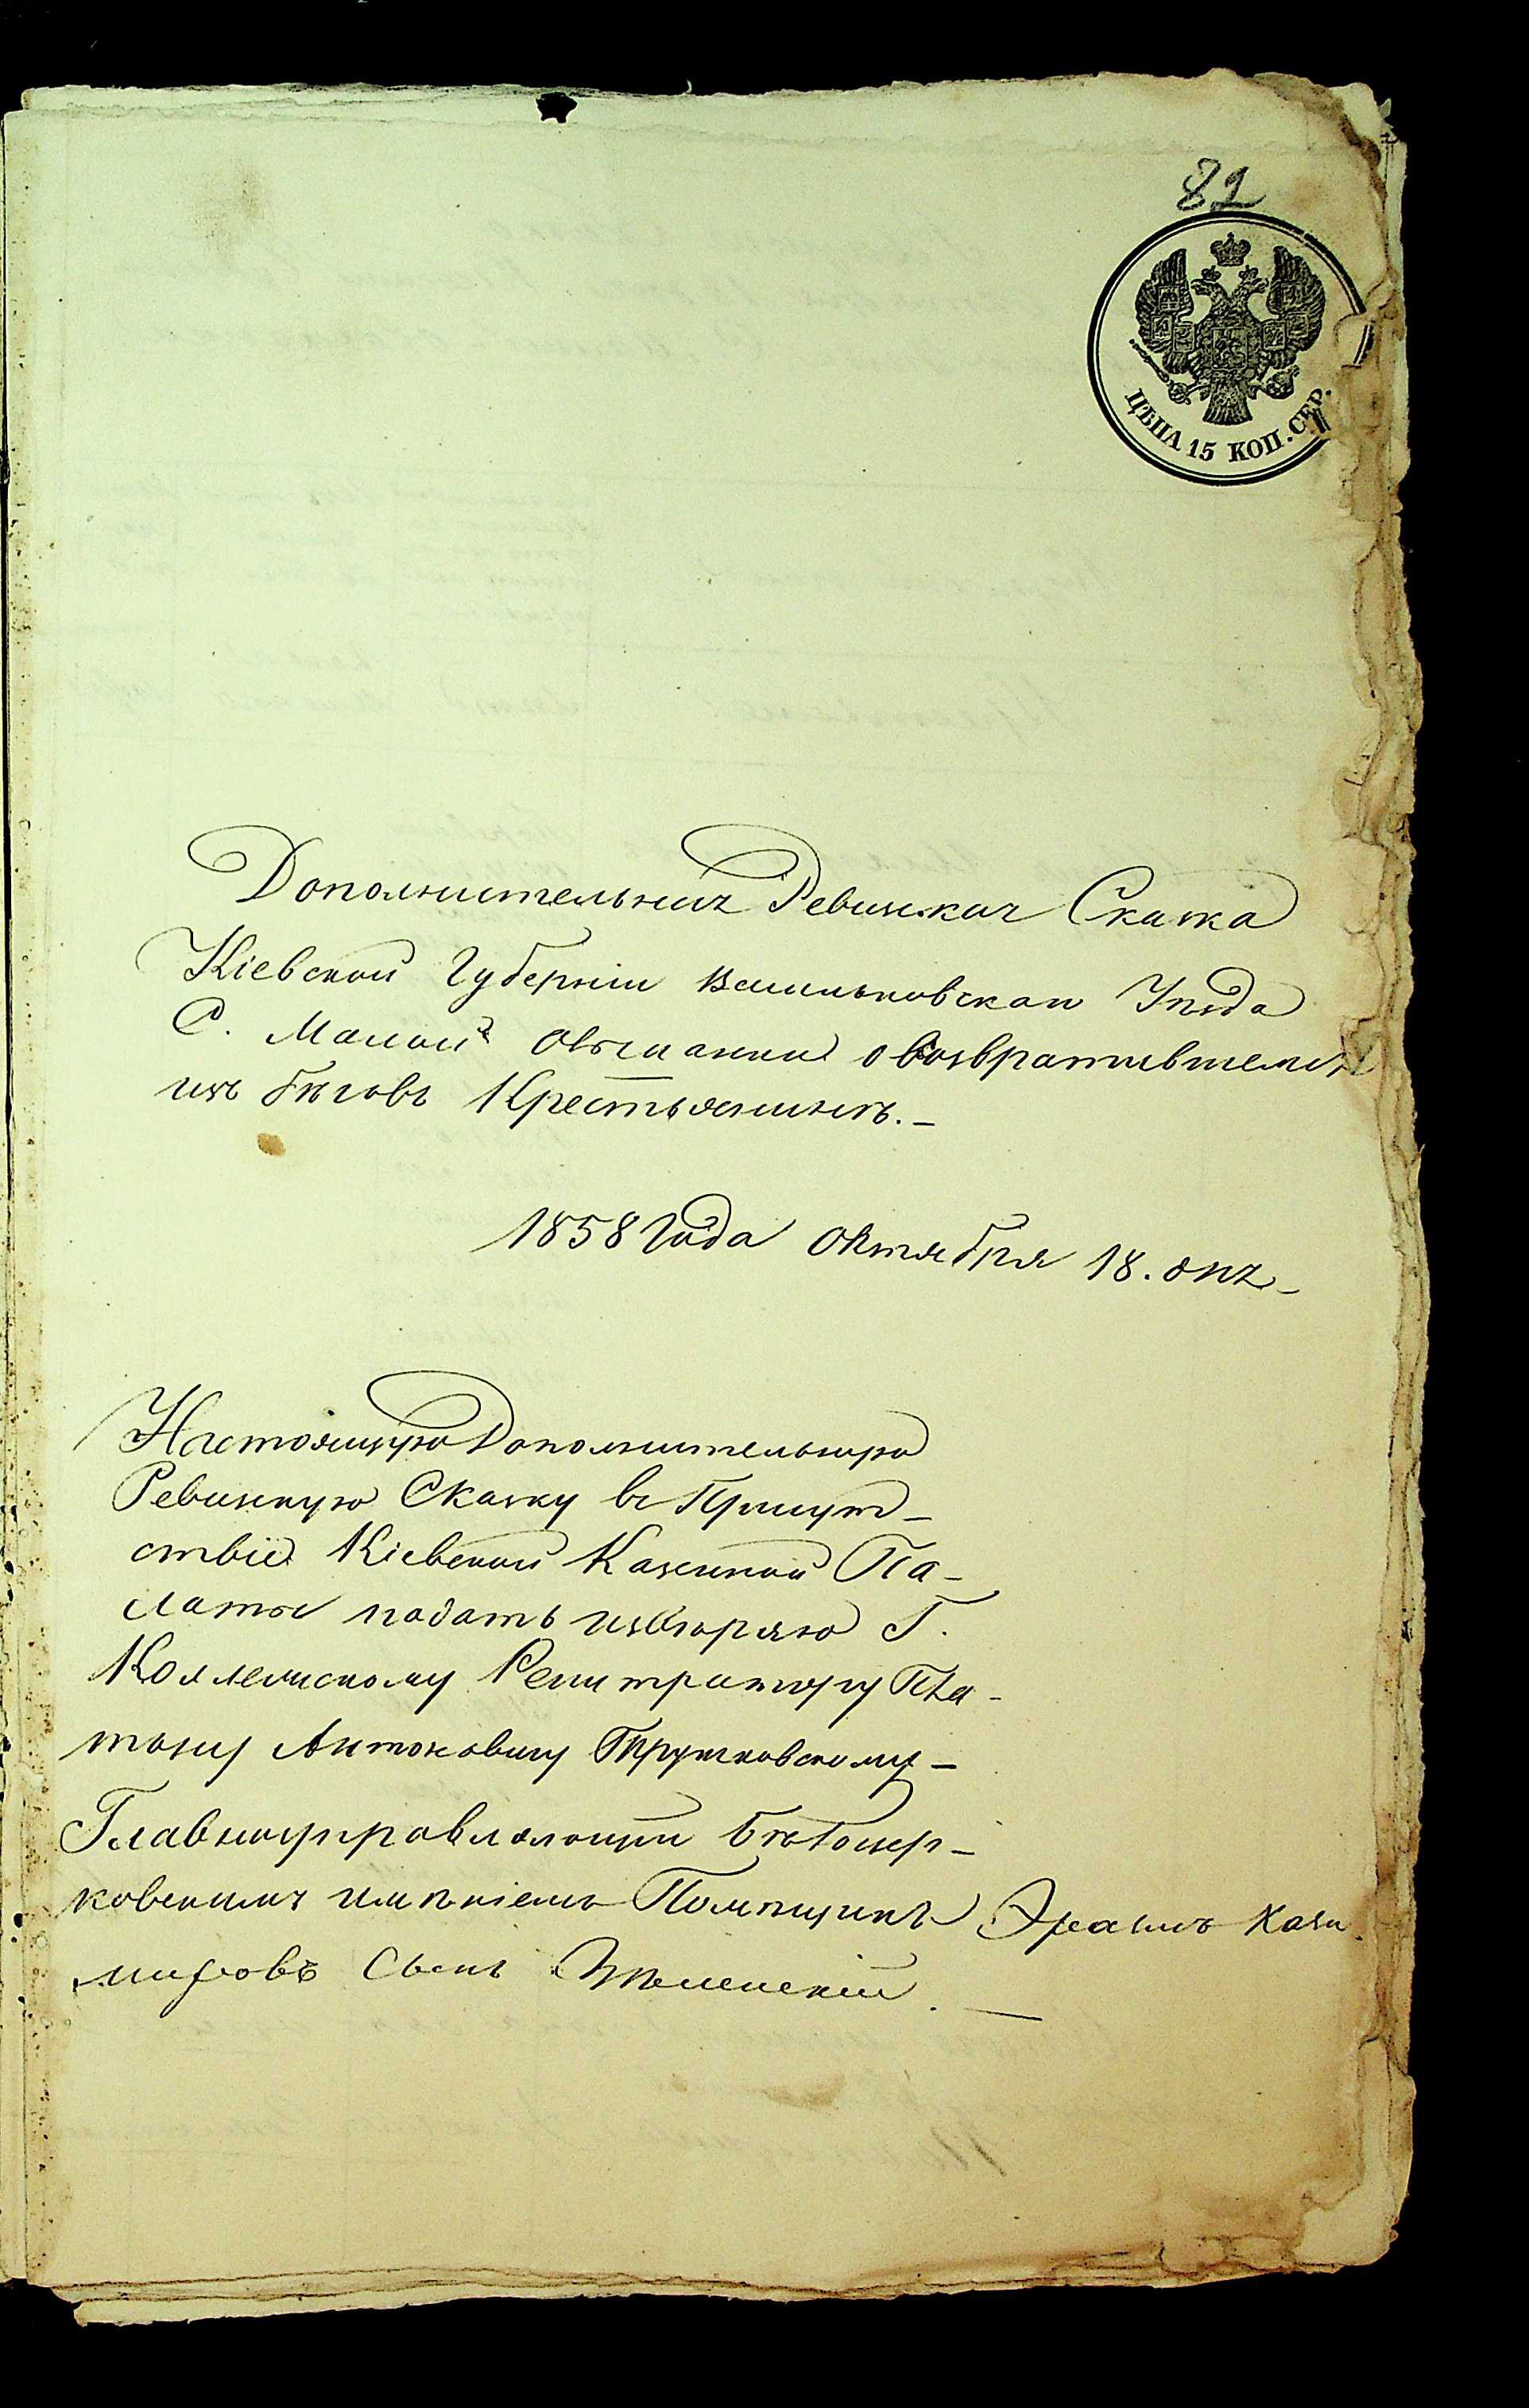 82
ЦѢНА 15 КОП. СЕР.
Дополнительная Ревизская Сказка
Кіевской Губерніи Васильковскаго Уѣзда
С. Малой Овсянки о возвратившемся
изъ бѣговъ Крестьянинѣ. –
1858 Года Октября 18. дня
Настоящую Дополнительную
Ревизскую Сказку въ Присут–
ствіе Кіевской Казенной Па–
латы подать ввѣряю Г.
Коллежскому Регистратору Пла–
тону Антоновичу Пружковскому –
Главноуправляющій Бѣлоцер–
ковскимъ имѣніемъ Помѣщикъ Эразмъ Кази
мировъ Сынъ